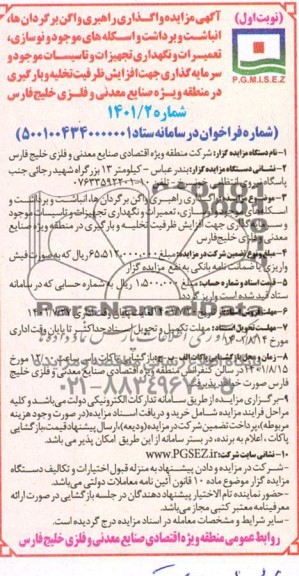 (نوبت اول)
آگهی مزایده واگذاری راهبری واگن برگردان ها،
انباشت و برداشت و اسکله های موجود و نوسازی،
تعمیرات و نگهداری تجهیزات و تاسیسات موجود و
سرمایه گذاری جهت افزایش ظرفیت تخلیه و بارگیری
در منطقه ویژه صنایع معدنی و فلزی خلیج فارس
P.G.M.I.S.E.Z
شماره ۱۴۰۱/۲
(شماره فراخوان در سامانه ستاد ۵۰۰۱۰۰۴۳۴۰۰۰۰۰۰۱)
۱- نام دستگاه مزایده گزار: شرکت منطقه ویژه اقتصادی صنایع معدنی و فلزی خلیج فارس
۲- نشانی دستگاه مزایده گزار: بندرعباس - کیلومتر ۱۳ بزرگراه شهید رجائی جنب
پاسگاه
راهبری واگن برگردان ها، انباشت و برداشت و
تعمیرات و نگهداری تجهیزات و تاسیسات موجود
جهت افزایش ظرفیت تخلیه و بارگیری در منطقه ویژه صنایع
معدنی و فلزی خلیج فارس
۴- مبلغ و نوع تضمین شرکت در مزایده: مبلغ ریال که به صورت فیش
واریزی یا ضمانت نامه بانکی به نفع مزایده گزار
۵- قیمت اسناد و شماره حساب: مبلغ ۱۵۰۰۰۰۰ ریال به شماره حسابی که در سامانه
ستاد قید شده است واریز گردد
۷- مهلت تحویل اسناد: مهلت تکمیل و تحویل اسناد حداکثر تا پایان وقت اداری
مورخ
۸- زمان و محل بازگشایی پاکات:
۱۴۰۱/۸/۱۵ در سالن کنفرانس منطقه ویژه اقتصادی صنایع معدنی و فلزی خلیج
فارس صورت خواهد پذیرفت
۹- برگزاری مزایده از طریق سامانه تدارکات الکترونیکی دولت می باشد و کلیه
مراحل فرایند مزایده شامل خرید و دریافت اسناد مزایده (در صورت وجود هزینه
مربوطه)، پرداخت تضمین شرکت در مزایده (ودیعه)، ارسال پیشنهاد قیمت، بازگشایی
پاکات، اعلام به برنده، در بستر سامانه از این طریق امکان پذیر می باشد.
۱۰- نشانی سایت شرکت: www.PGSEZ.ir
- شرکت در مزایده و دادن پیشنهاد به منزله قبول اختیارات و تکالیف دستگاه
مزایده گزار موضوع ماده ۱۰ قانون آئین نامه معاملات دولتی می باشد.
- حضور نماینده تام الاختیار پیشنهاد دهندگان در جلسه بازگشایی در صورت ارائه
معرفینامه معتبر کتبی مجاز می باشد.
- سایر شرایط و مشخصات معامله در اسناد مزایده درج گردیده است.
روابط عمومی منطقه ویژه اقتصادی صنایع معدنی و فلزی خلیج فارس
ParsNamadData
۰۲۱-۸۸۳۴۹۶۷۰-۵